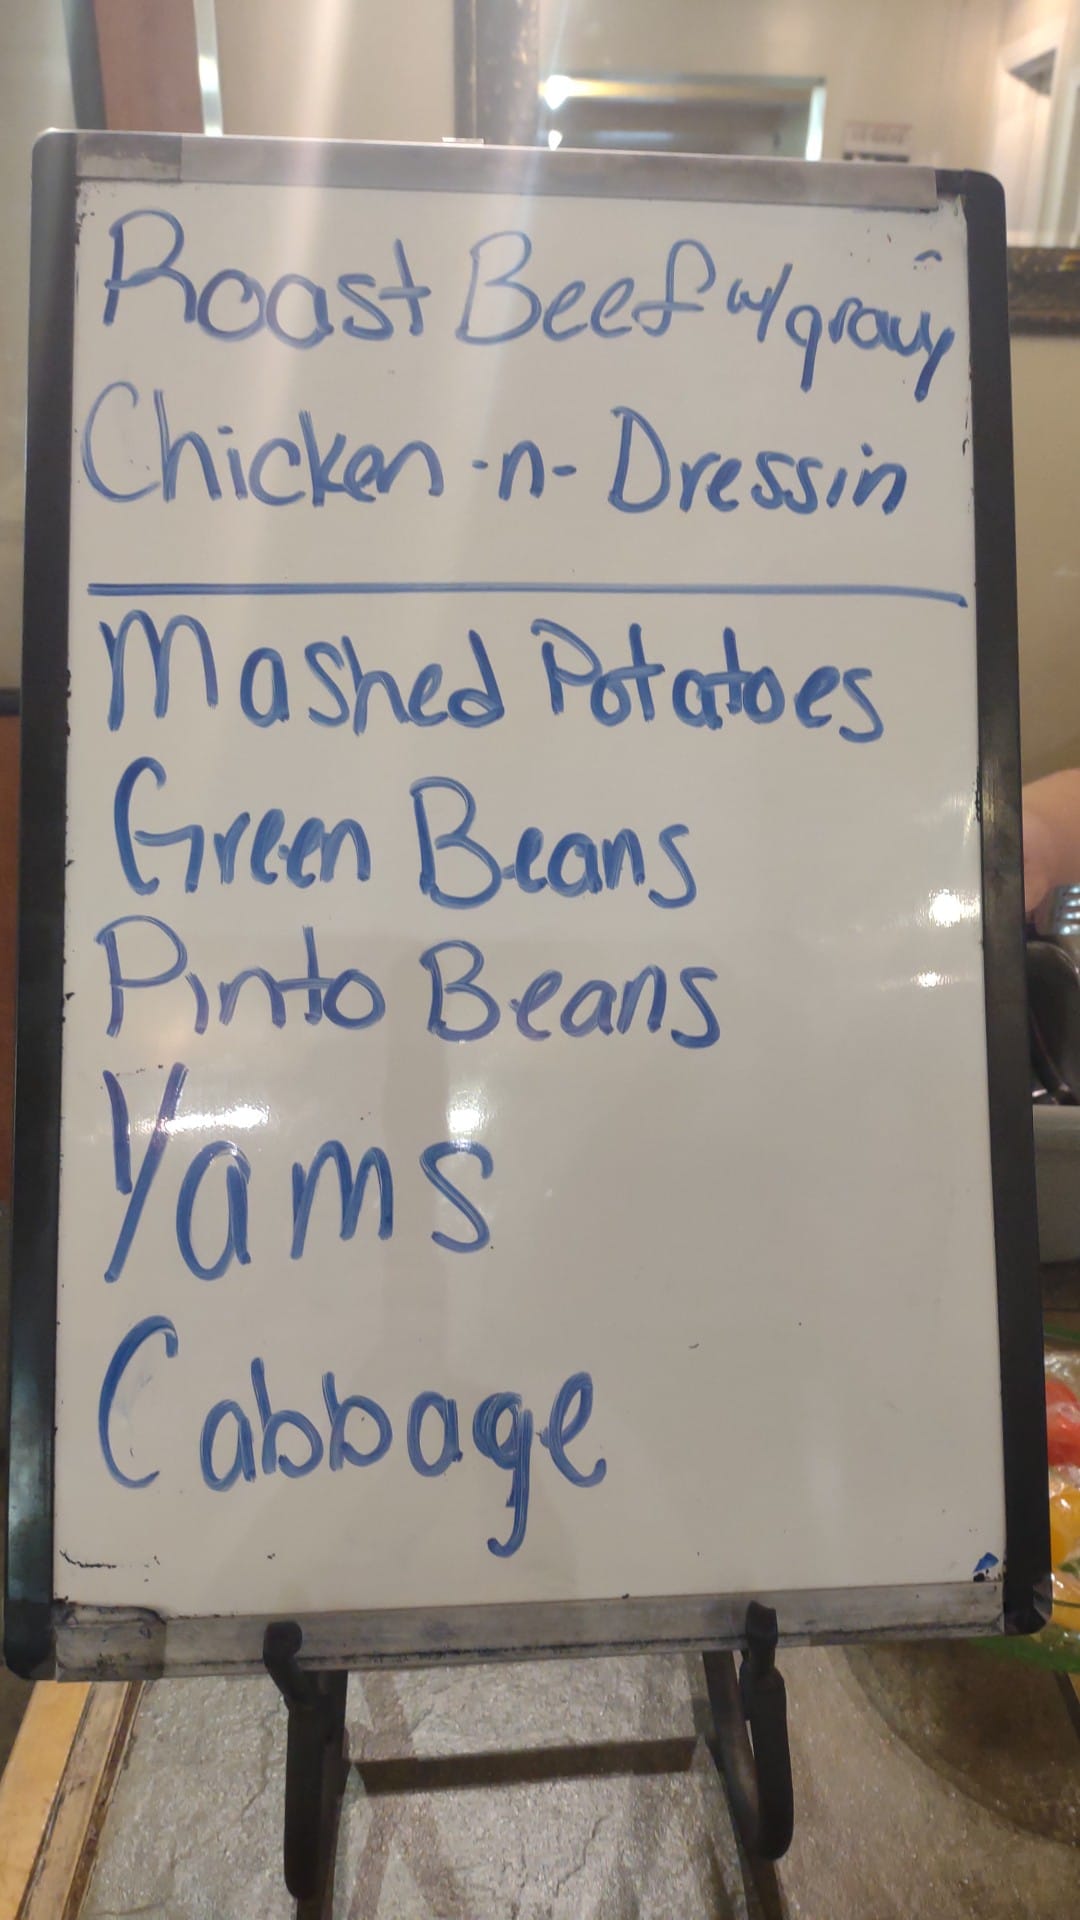 Roast Beef w/gravy
Chicken -n- Dressin
Mashed Potatoes
Green Beans
Pinto Beans
Yams
Cabbage